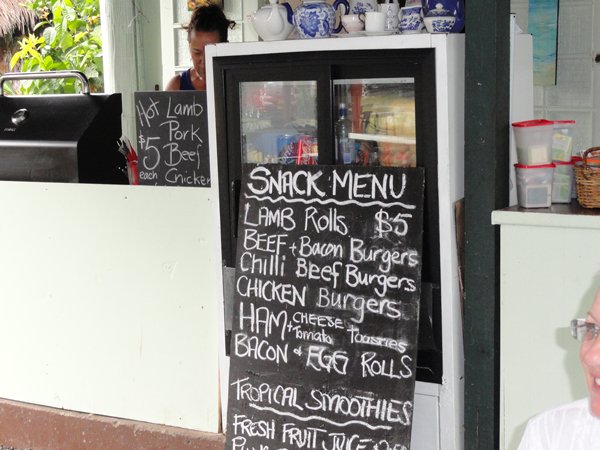 HOT LAMB
PORK
$5 BEEF
each CHICKEN
SNACK MENU
LAMB ROLLS $5
BEEF + Bacon Burgers
Chilli Beef Burgers
CHICKEN Burgers
HAM + CHEESE Tomato Toasties
BACON + EGG ROLLS
TROPICAL SMOOTHIES
FRESH FRUIT JUICE